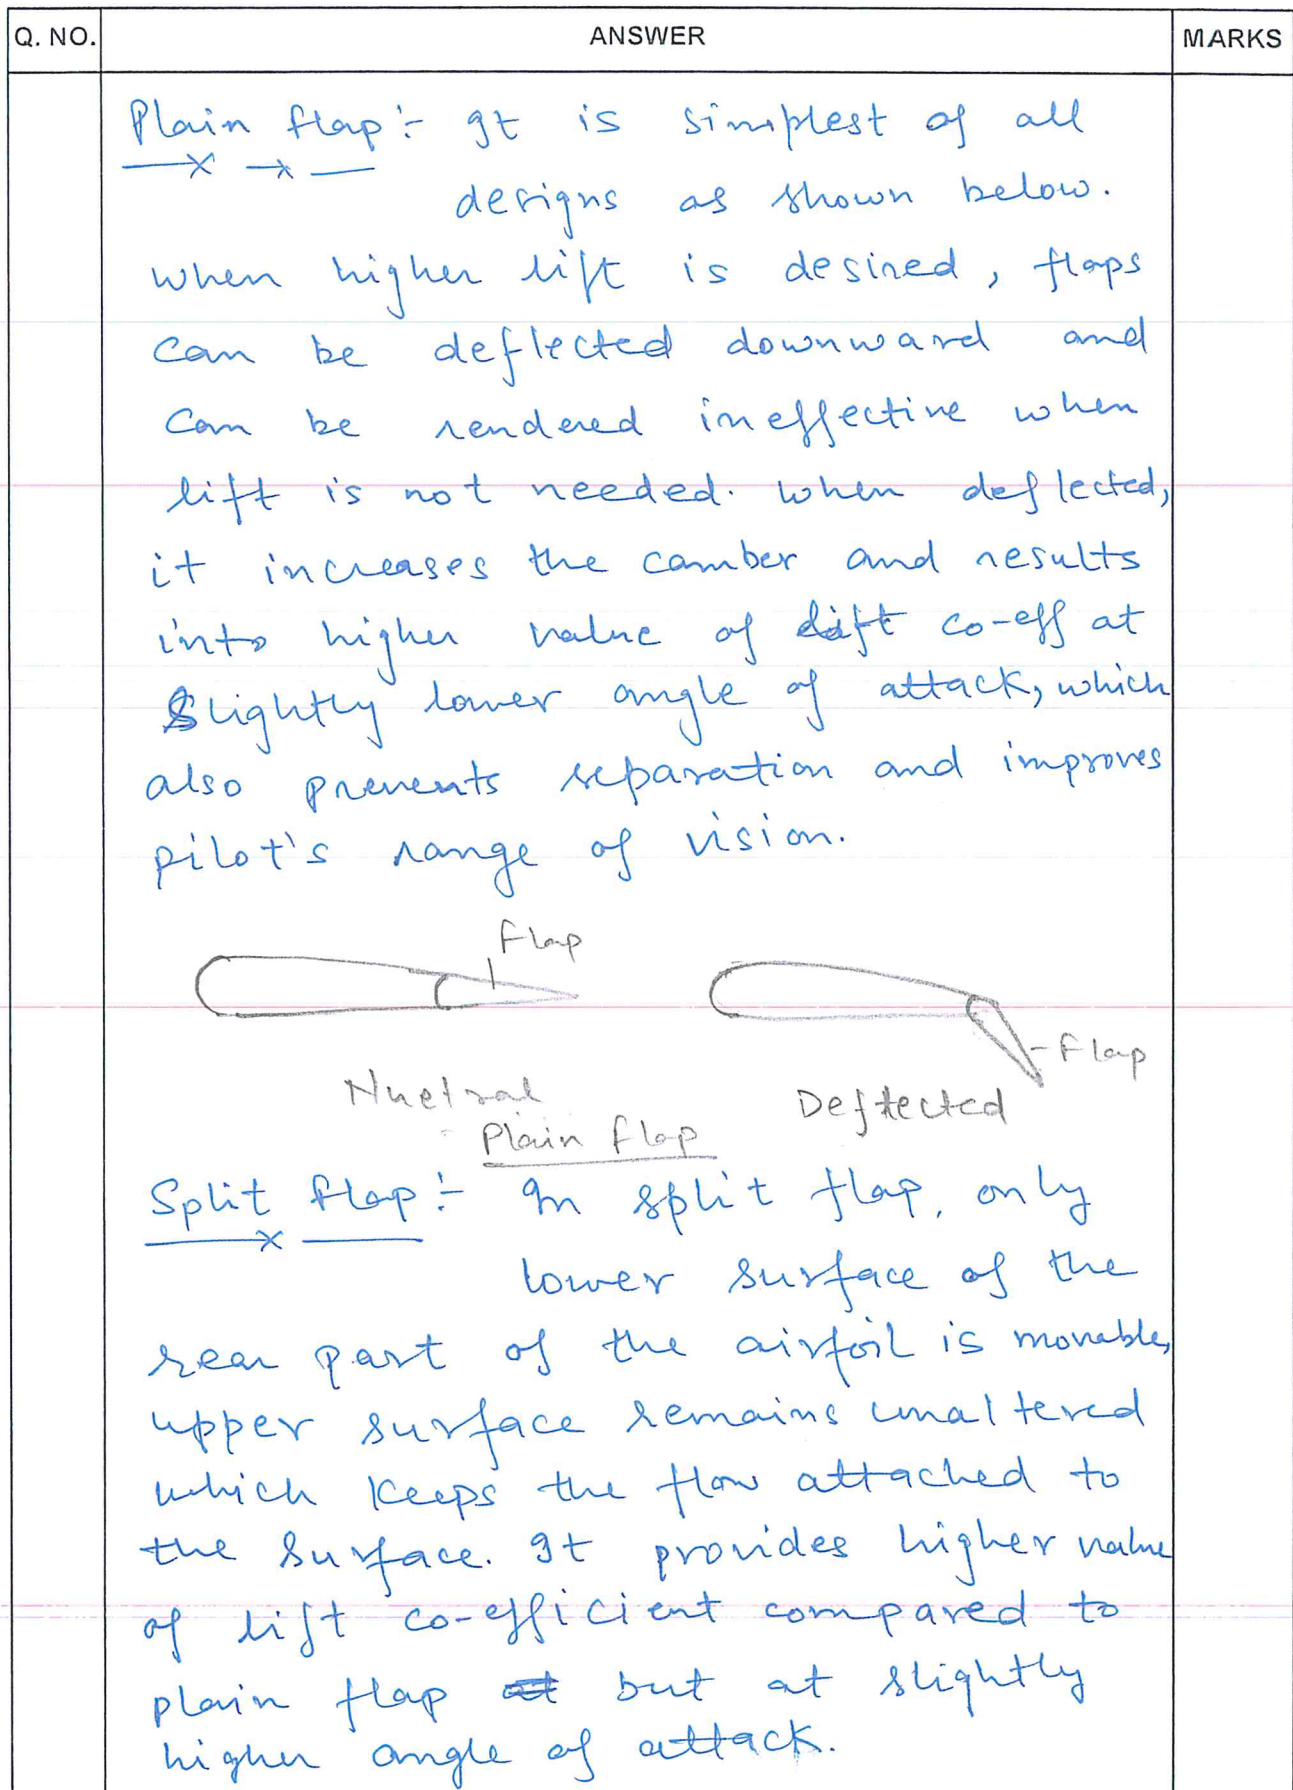 Q. NO. ANSWER MARKS
Plain flap :- It is simplest of all
designs as shown below.
when higher lift is desired, flaps
can be deflected downward and
can be rendered ineffective when
lift is not needed. when deflected,
it increases the camber and results
into higher value of lift co-eff at
slightly lower angle of attack, which
also prevents separation and improves
pilot's range of vision.
Flap
Flap
Nuetral Deflected
Plain flap
Split flap :- In split flap, only
lower surface of the
rear part of the airfoil is movable,
upper surface remains unaltered
which keeps the flow attached to
the surface. It provides higher value
of lift co-efficient compared to
plain flap but at slightly
higher angle of attack.